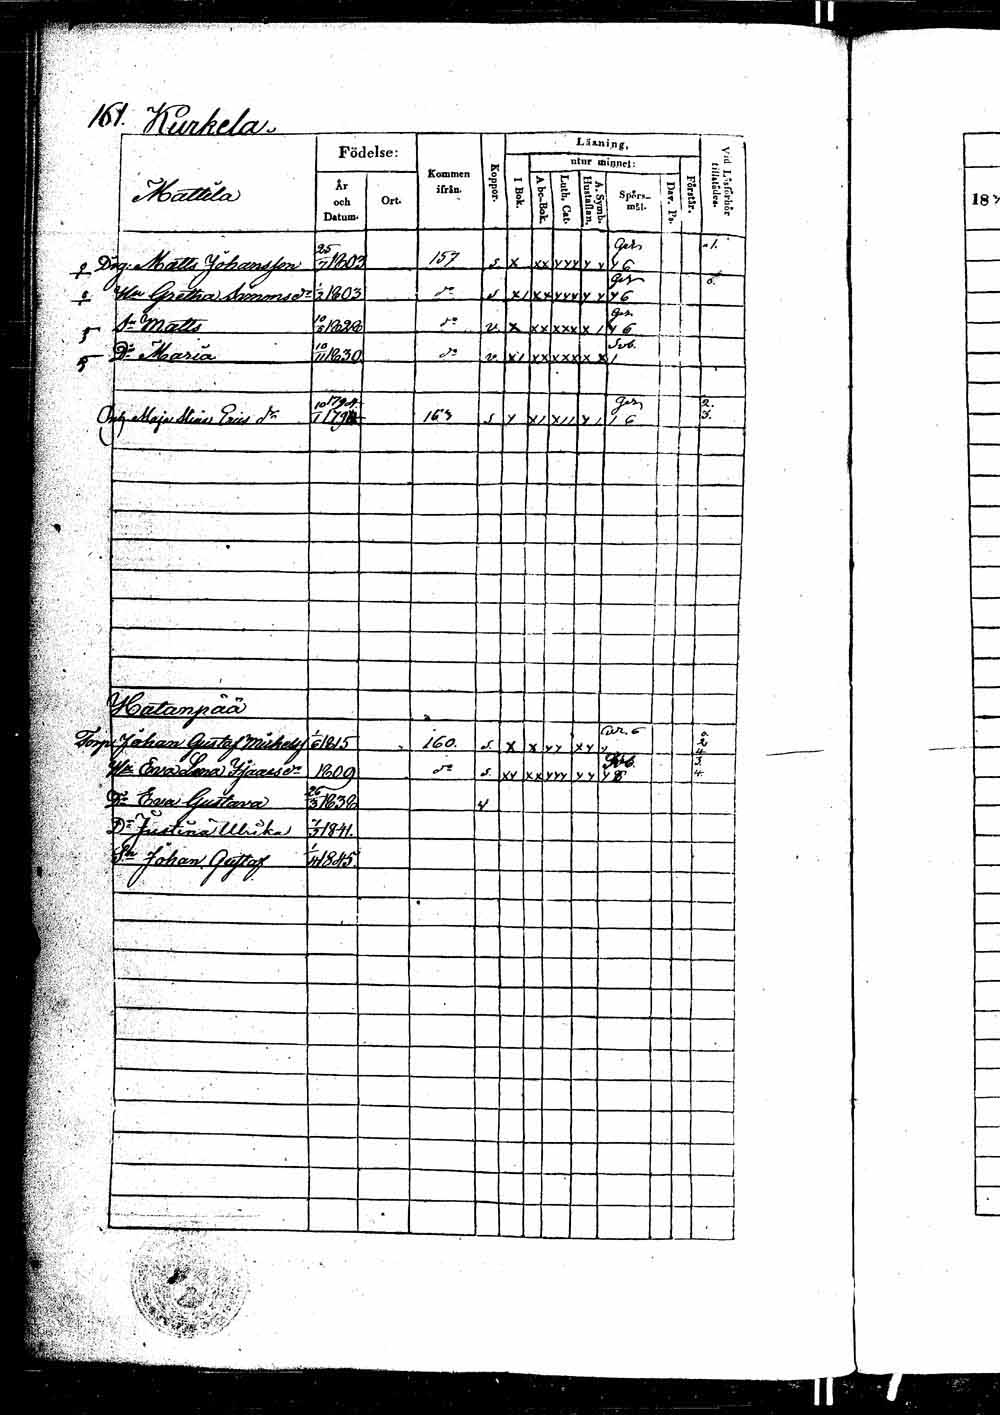 161. Kurkela.
Födelse:
Läsning,
utur minnet:
Mattila
År och Datum.
Ort.
Kommen ifrån.
Koppor.
I Bok.
A bc-Bok.
Luth. Cat.
A. Symb. Hustaflan.
Spörs-mål.
Dav. Ps.
Förstår.
Vid Läsförhör tillstädes.
187
Matts Johansson 25/7 1803 157 s x xx yyy y y Ger y 6 1.
Hu Gretha Simmsdr 1/3 1803 do s x/ xx yyy y y Ger y 6
Sn Matts 1828 do v x xx xxx x / Ger y 6
Dr Maria 10/11 1830 do v x/ xx xxx x x Svb. /
Maja Stina Ericsdr 1794 163 s y x/ x// y / Ger / 6 2. 3.
Hatanpää
Torp. Johan Gustaf 1/6 1815 160. s. x x yy xy y 6 2 4.
Hu Eva Lena Isaacsdr 1809 do s. xy xx yyy y y y 3. 4.
Dr Eva Gustava 26/3 1838 v
Dr Justina Ulrika 7/3 1841.
Sn Johan Gustaf 1845.